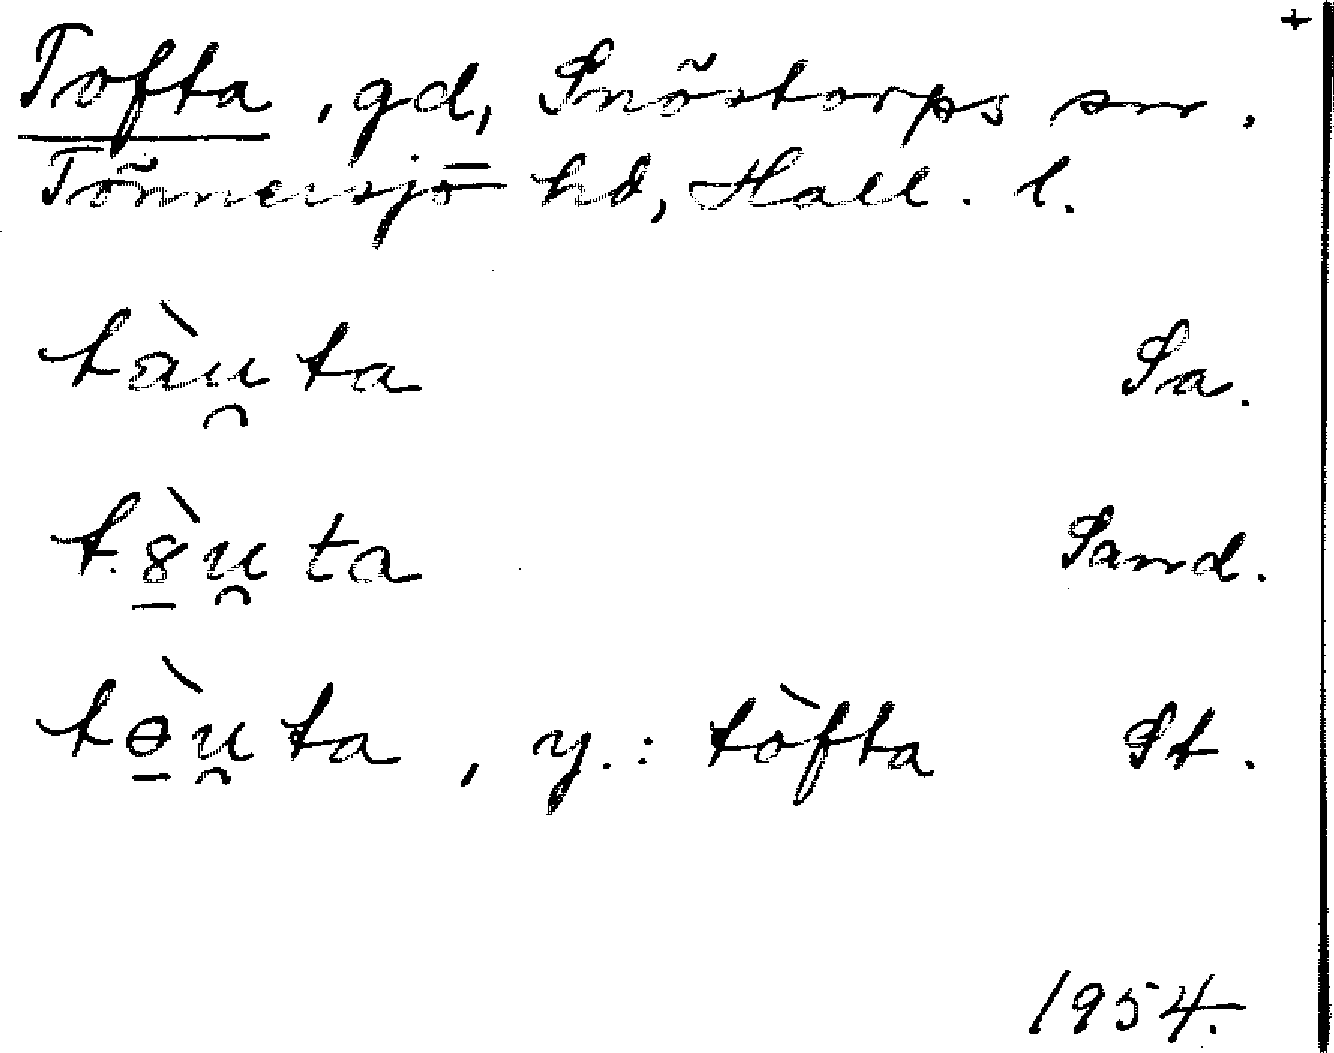 +
Tofta, gd, Snöstorps sn.
Tönnersjö hd, Hall. l.
tàu̯ta Sa.
t8̲̀u̯ta Sand.
tɵ̲̀u̯ta, y.: tòfta St.
1954.